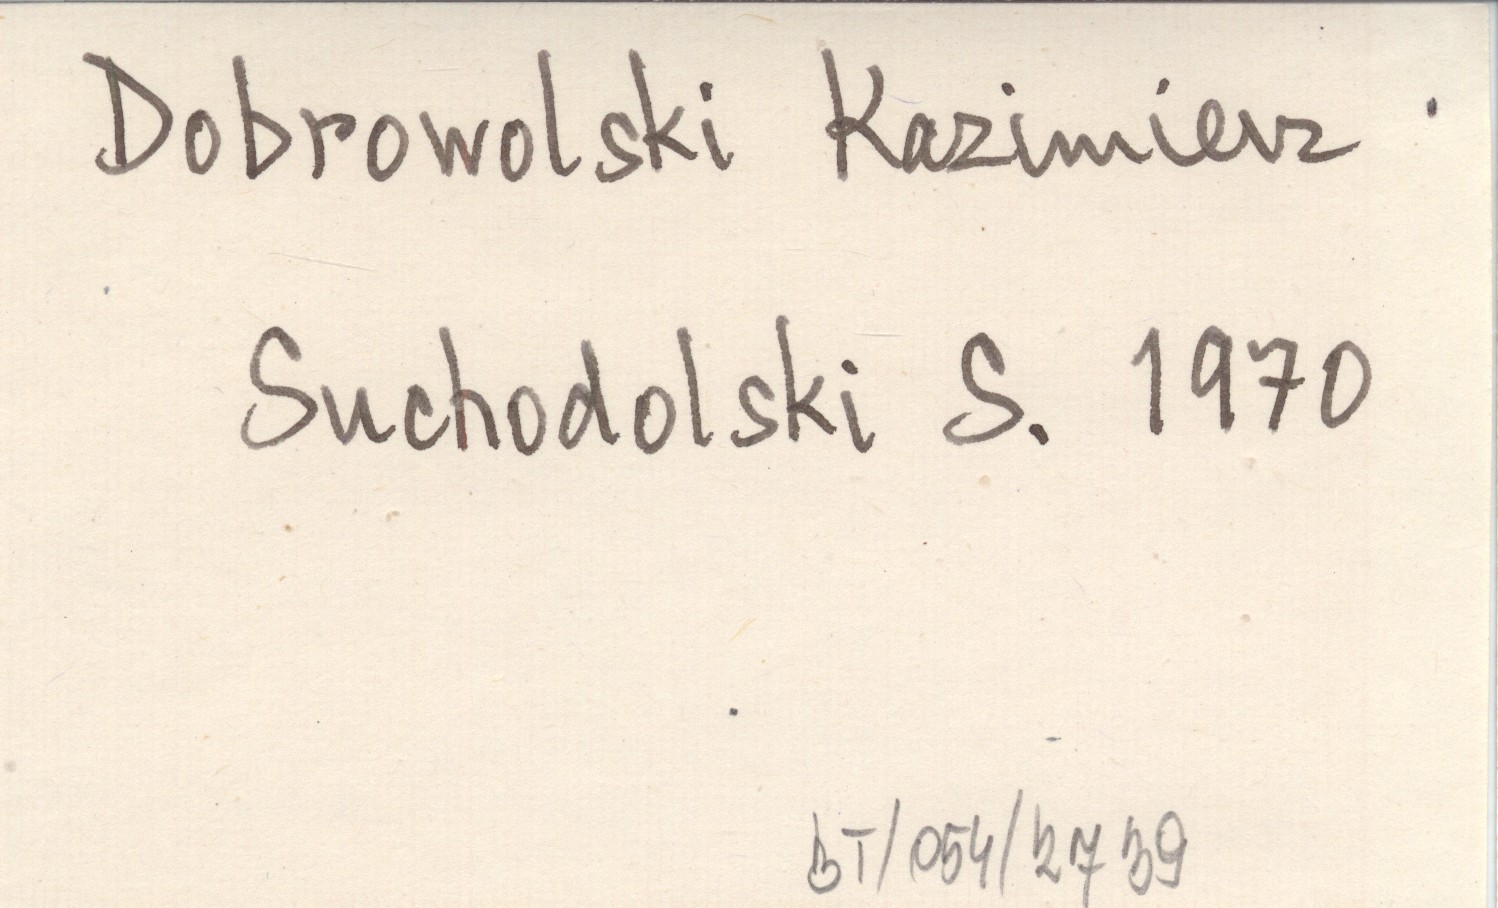 Dobrowolski Kazimierz
Suchodolski S. 1970
BT/054/2739